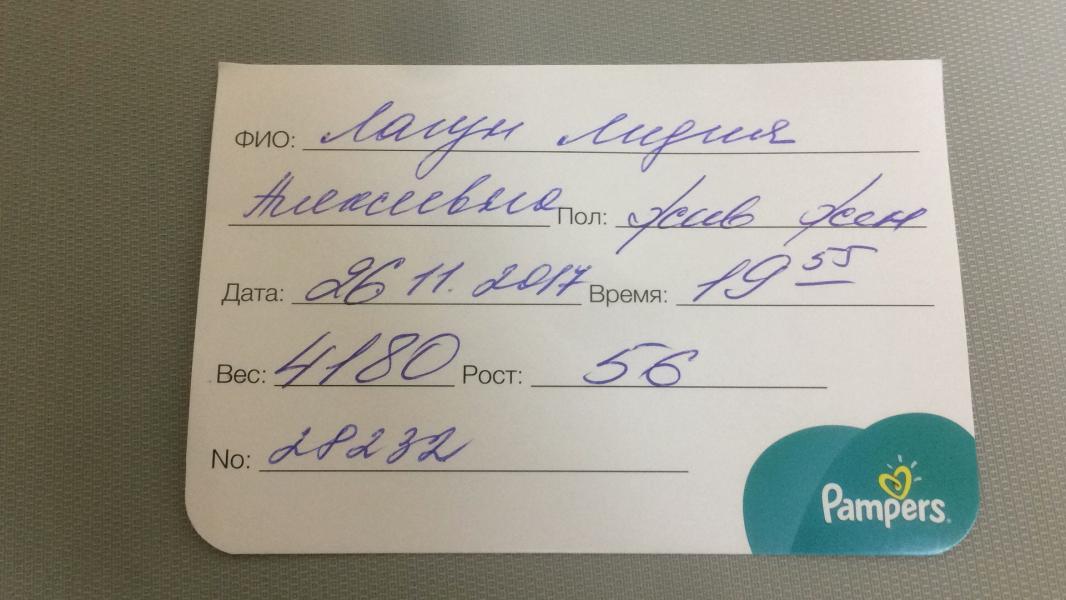 ФИО: Лагун Лидия
Алексеевна Пол: жив жен
Дата: 26 11. 2017 Время: 19 55
Вес: 4180 Рост: 56
No: 28232
Pampers